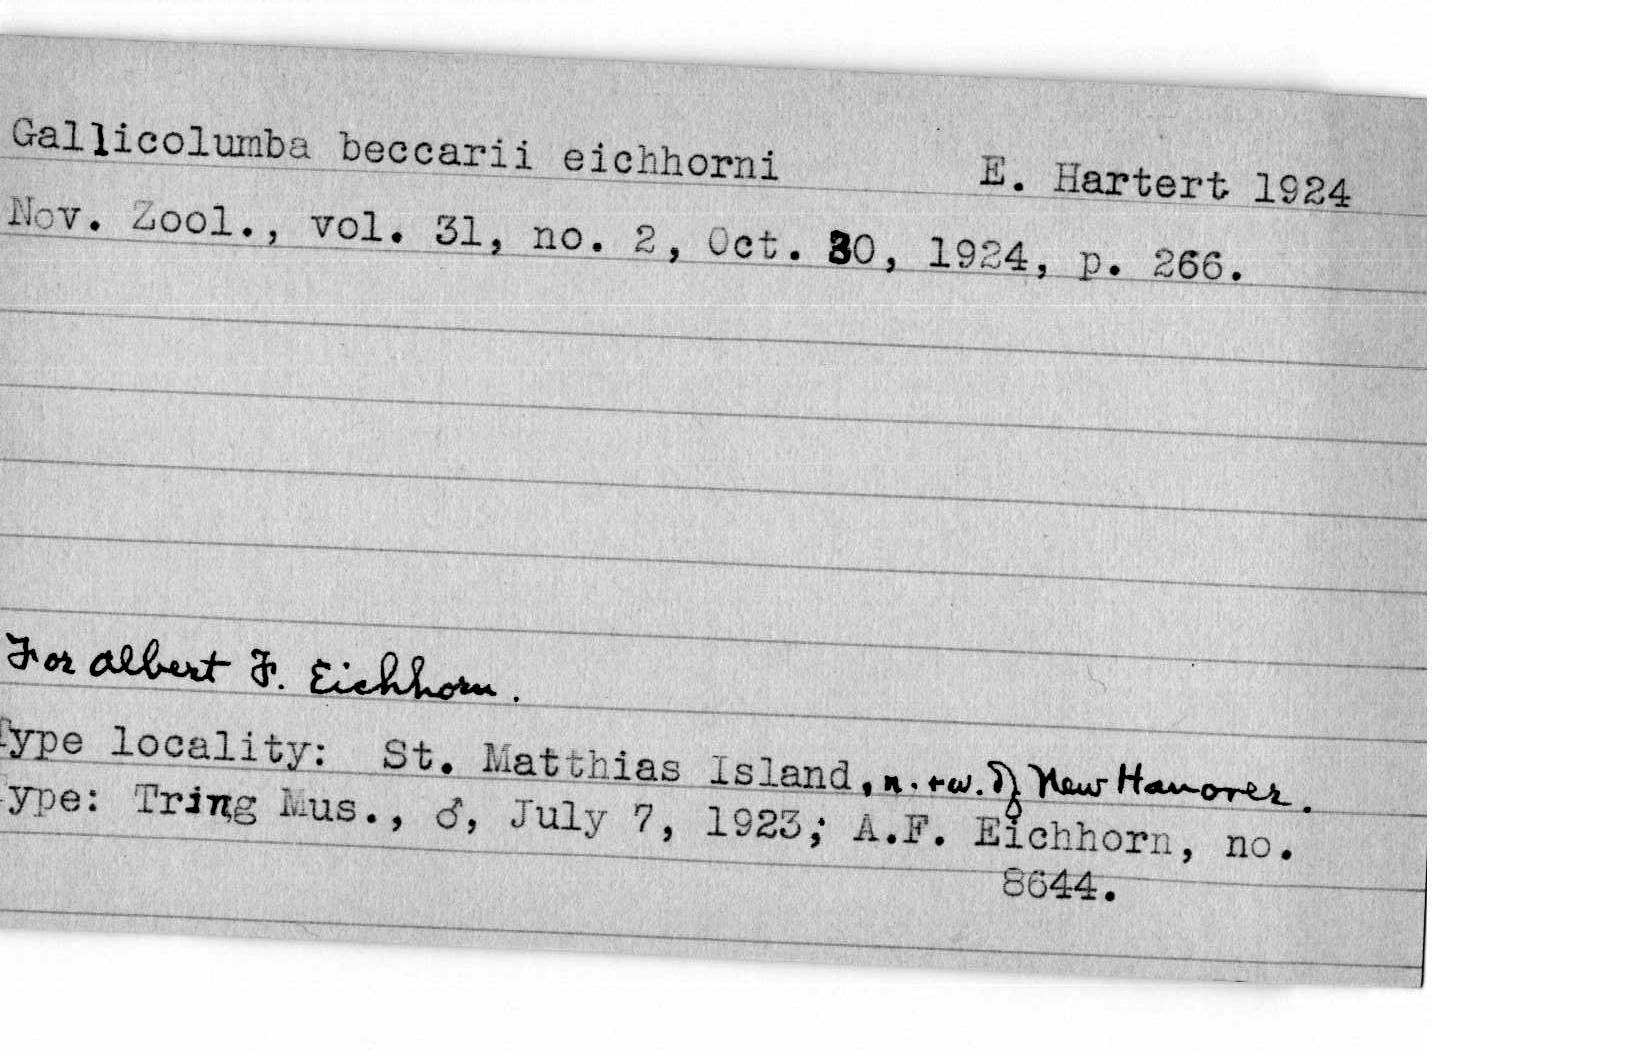 Gallicolumba beccarii eichhorni E. Hartert 1924
Nov. Zool., vol. 31, no. 2, Oct. 30, 1924, p. 266.
For Albert F. Eichhorn.
Type locality: St. Matthias Island, n. + w. of New Hanover.
Type: Tring Mus., ♂, July 7, 1923; A.F. Eichhorn, no.
8644.